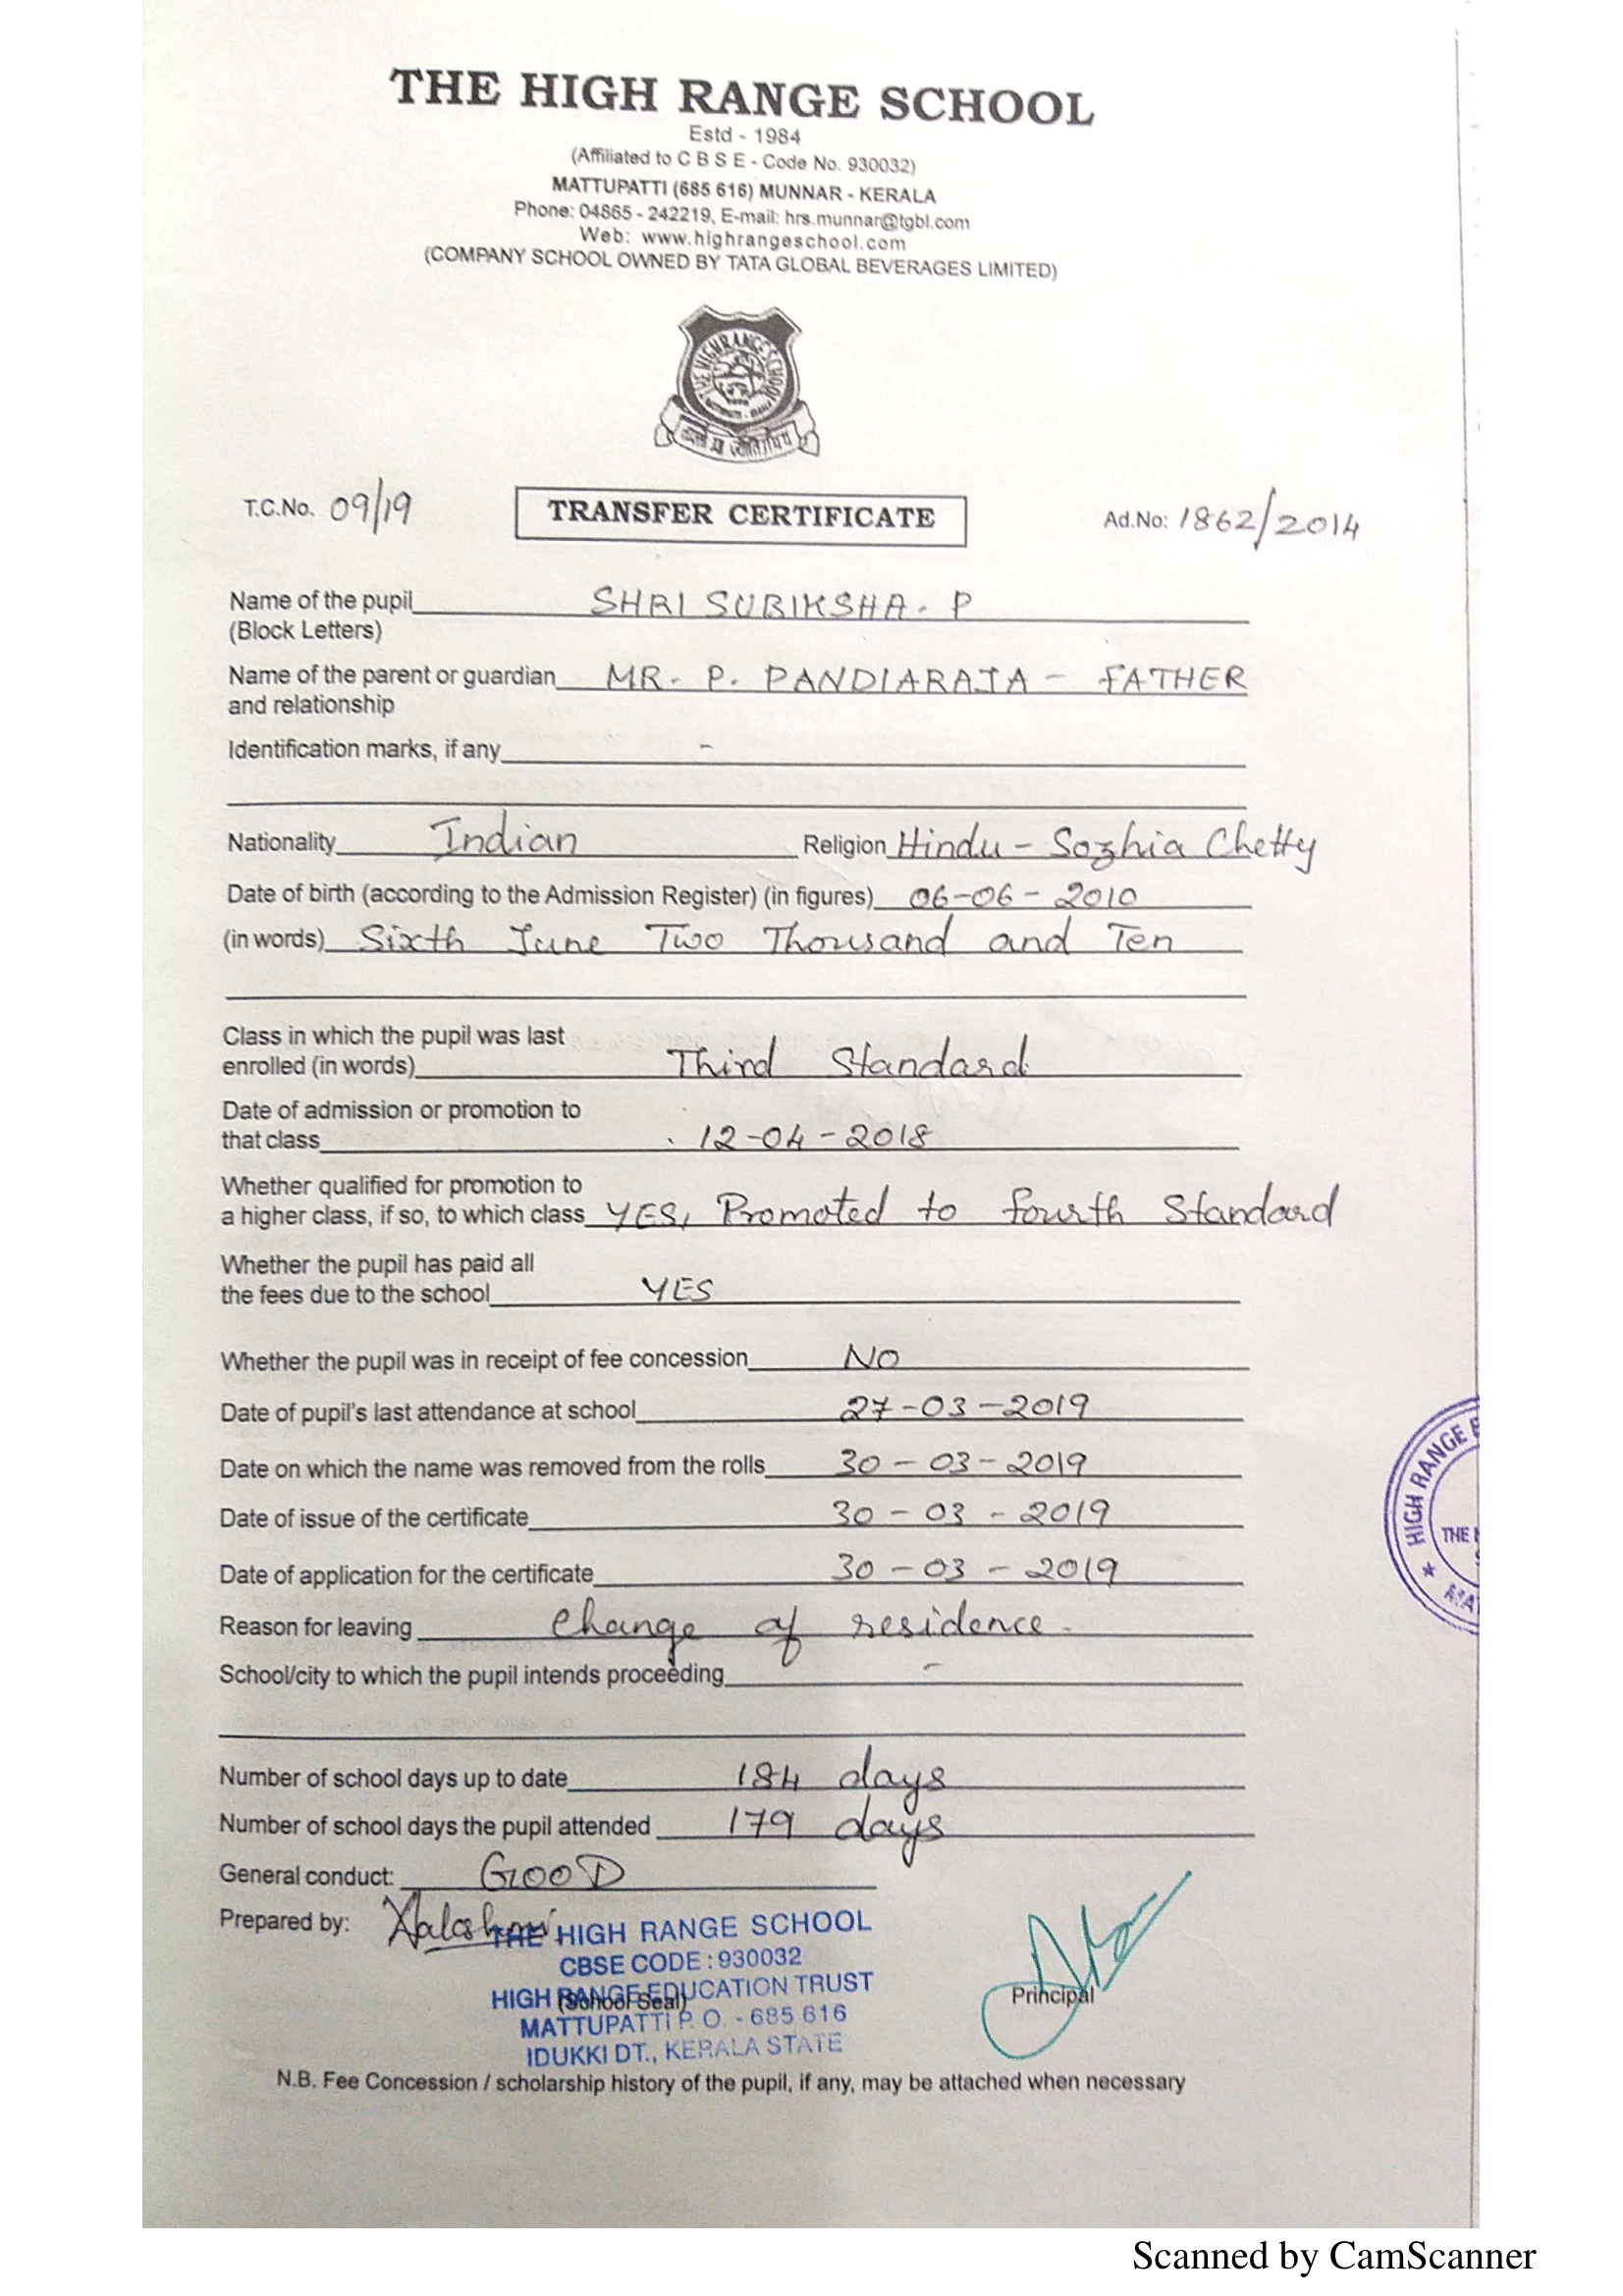 THE HIGH RANGE SCHOOL
Estd - 1984
(Affiliated to C B S E - Code No. 930032)
MATTUPATTI (685 616) MUNNAR - KERALA
Phone: 04865 - 242219, E-mail: hrs.munnar@tgbl.com
Web: www.highrangeschool.com
(COMPANY SCHOOL OWNED BY TATA GLOBAL BEVERAGES LIMITED)
THE HIGH RANGE SCHOOL
T.C.No. 09/19 TRANSFER CERTIFICATE Ad.No: 1862/2014
Name of the pupil SHRI SUBIKSHA - P
(Block Letters)
Name of the parent or guardian MR. P. PANDIARAJA - FATHER
and relationship
Identification marks, if any -
Nationality Indian Religion Hindu - Sozhia Chetty
Date of birth (according to the Admission Register) (in figures) 06-06-2010
(in words) Sixth June Two Thousand and Ten
Class in which the pupil was last
enrolled (in words) Third Standard
Date of admission or promotion to
that class 12-04-2018
Whether qualified for promotion to
a higher class, if so, to which class YES, Promoted to fourth Standard
Whether the pupil has paid all
the fees due to the school YES
Whether the pupil was in receipt of fee concession NO
Date of pupil's last attendance at school 27-03-2019
Date on which the name was removed from the rolls 30-03-2019
Date of issue of the certificate 30-03-2019
Date of application for the certificate 30-03-2019
Reason for leaving Change of residence.
School/city to which the pupil intends proceeding -
Number of school days up to date 184 days
Number of school days the pupil attended 179 days
General conduct: GOOD
Prepared by:
THE HIGH RANGE SCHOOL
CBSE CODE : 930032
HIGH RANGE EDUCATION TRUST
(School Seal)
Principal
MATTUPATTI P. O. - 685 616
IDUKKI DT., KERALA STATE
N.B. Fee Concession / scholarship history of the pupil, if any, may be attached when necessary
HIGH RANGE
THE
Scanned by CamScanner